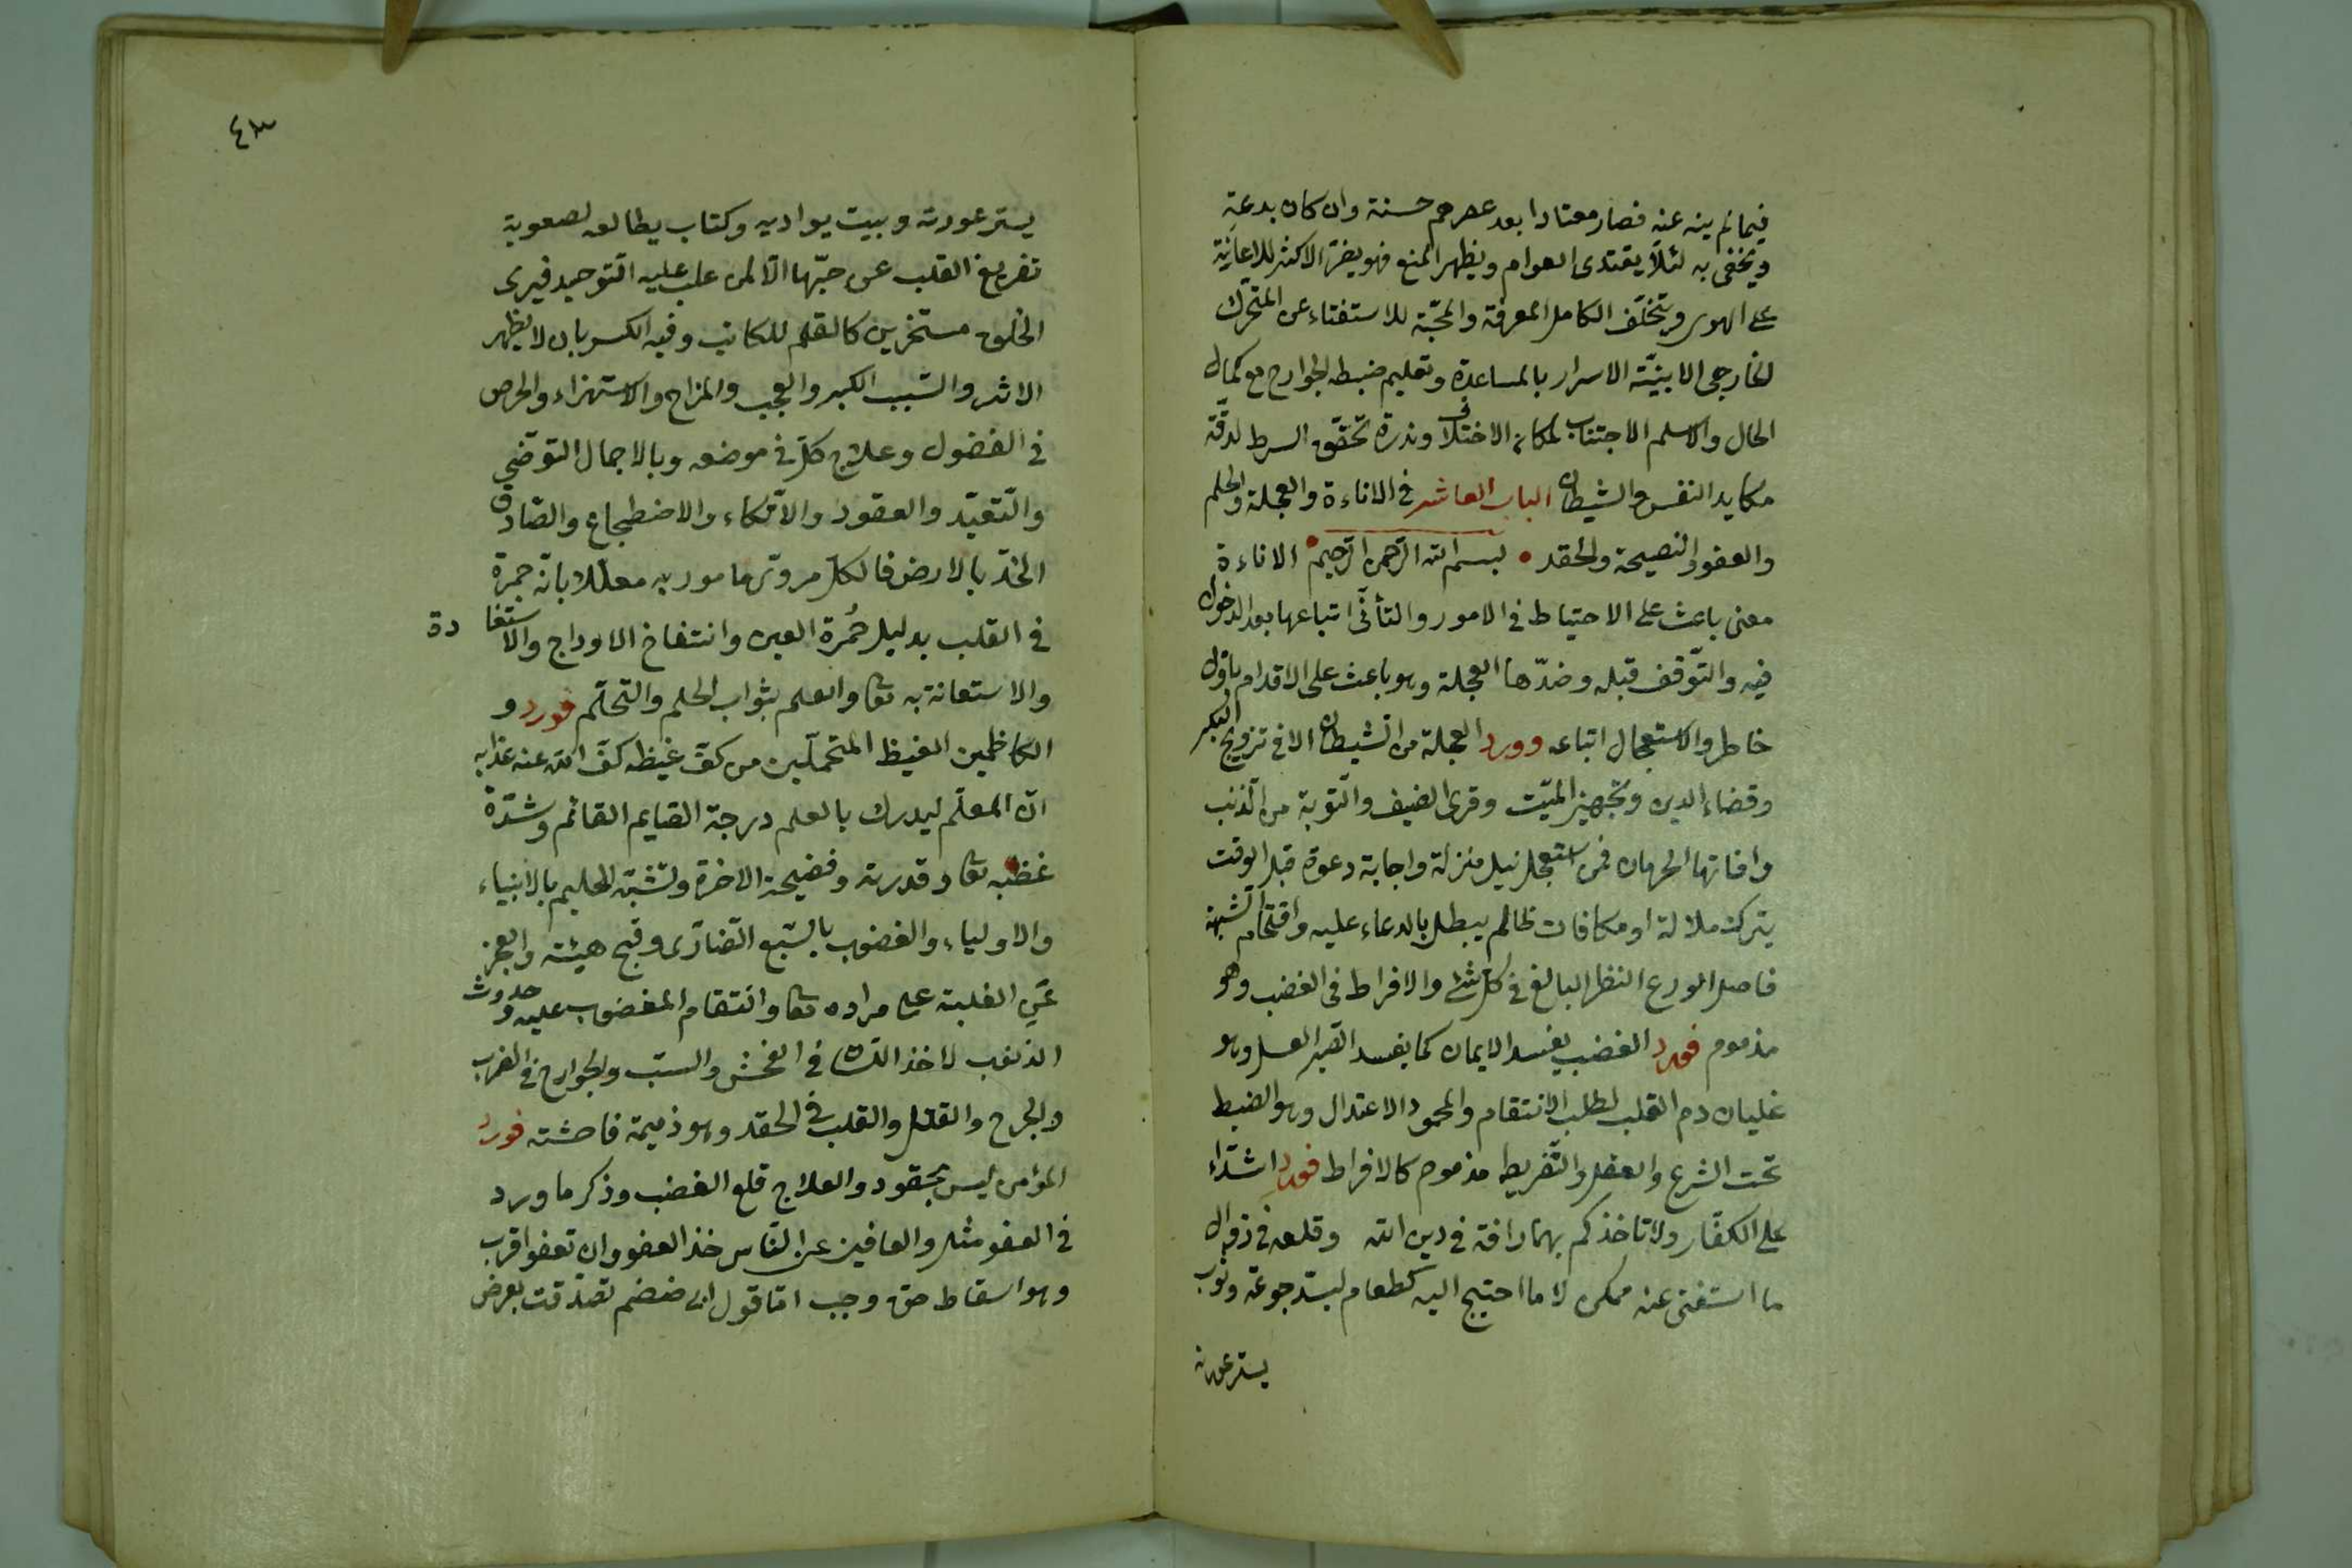 فيما لم ينه عنه فصار معتادا بعد عصرهم حسنة وان كان بدعة
ويخفى به لئلا يقتدى العوام ويظهر المنع فهو يضر الاكثر للاعانة
على الهوى ويتخلف الكامل المعرفة والمحبة للاستفتاء عن المتحرك
الخارجى الا بنية الاسرار بالمساعدة وتعليم ضبط الجوارح مع كمال
الحال والاسلم الاجتناب لمكان الاختلاف وندرة تحقق الشرط لدقة
مكايد النفس والشيطان الباب العاشر فى الاناءة والعجلة والحلم
والعفو والنصيحة والحقد بسم الله الرحمن الرحيم الاناءة
معنى باعث على الاحتياط فى الامور والتأنى اتباعها بعد الدخول
فيه والتوقف قبله وضدها العجلة وهو باعث على الاقدام باول
خاطر والاستعجال اتباعه وورد العجلة من الشيطان الا فى تزويج البكر
وقضاء الدين وتجهيز الميت وقرى الضيف والتوبة من الذنب
وافاتها الحرمان فمن استعجل نيل منزلة واجابة دعوة قبل الوقت
يترك ملالة او مكافات ظالم يبطل بالدعاء عليه واقتحام الشبهة
فاصل الورع النظر البالغ فى كل شئ والافراط فى الغضب وهو
مذموم فورد الغضب يفسد الايمان كما يفسد الصبر العسل وهو
غليان دم القلب لطلب الانتقام والمحمود الاعتدال وهو الضبط
تحت الشرع والعقل والتفريط مذموم كالافراط فورد اشداء
على الكفار ولا تاخذكم بهما رافة فى دين الله وقلعه فى زوال
ما استغنى عنه ممكن لا ما احتيج اليه كطعام ليسد جوعة وثوب
يستر عورته
٤٣
يستر عورته وبيت يواديه وكتاب يطالعه لصعوبة
تفريغ القلب عن حبها الا لمن غلب عليه التوحيد فيرى
الخلق مسخرين كالقلم للكاتب وفيه الكسر بان لا يظهر
الاثر والسبب الكبر والعجب والمزاح والاستهزاء والحرص
فى الفضول وعلاج كل فى موضعه وبالاجمال التوضى
والتقيد والعقود والاتكاء والاضطجاع والصاق
الخد بالارض فالكل مروى مامور به معللا بانه جمرة
فى القلب بدليل حمرة العين وانتفاخ الاوداج والاستفادة
والاستعانة به تعا والعلم بثواب الحلم والتحلم فورد و
الكاظمين الغيظ المتحملين من كف غيظه كف الله عنه عذابه
ان المعلم ليدرك بالعلم درجة الصايم القائم وشدة
غضبه تعا وقدرته وفضيحة الاخرة وتشبه الحليم بالانبياء
والاولياء والغضوب بالسبع الضارى وقبح هيئته والعجز
عن الغلبة على مراده تعا وانتقام المغضوب عليه وحدوث
الذنوب لاخذ اللسان فى الفحش والسب والجوارح فى الضرب
والجرح والقتل والقلب فى الحقد وهو ذميمة فاحشة فورد
المؤمن ليس بحقود والعلاج قلع الغضب وذكر ما ورد
فى العفو مثل والعافين عن الناس خذ العفو وان تعفوا اقرب
وهو اسقاط حق وجب اما قول ابى ضمضم تصدقت بعرض